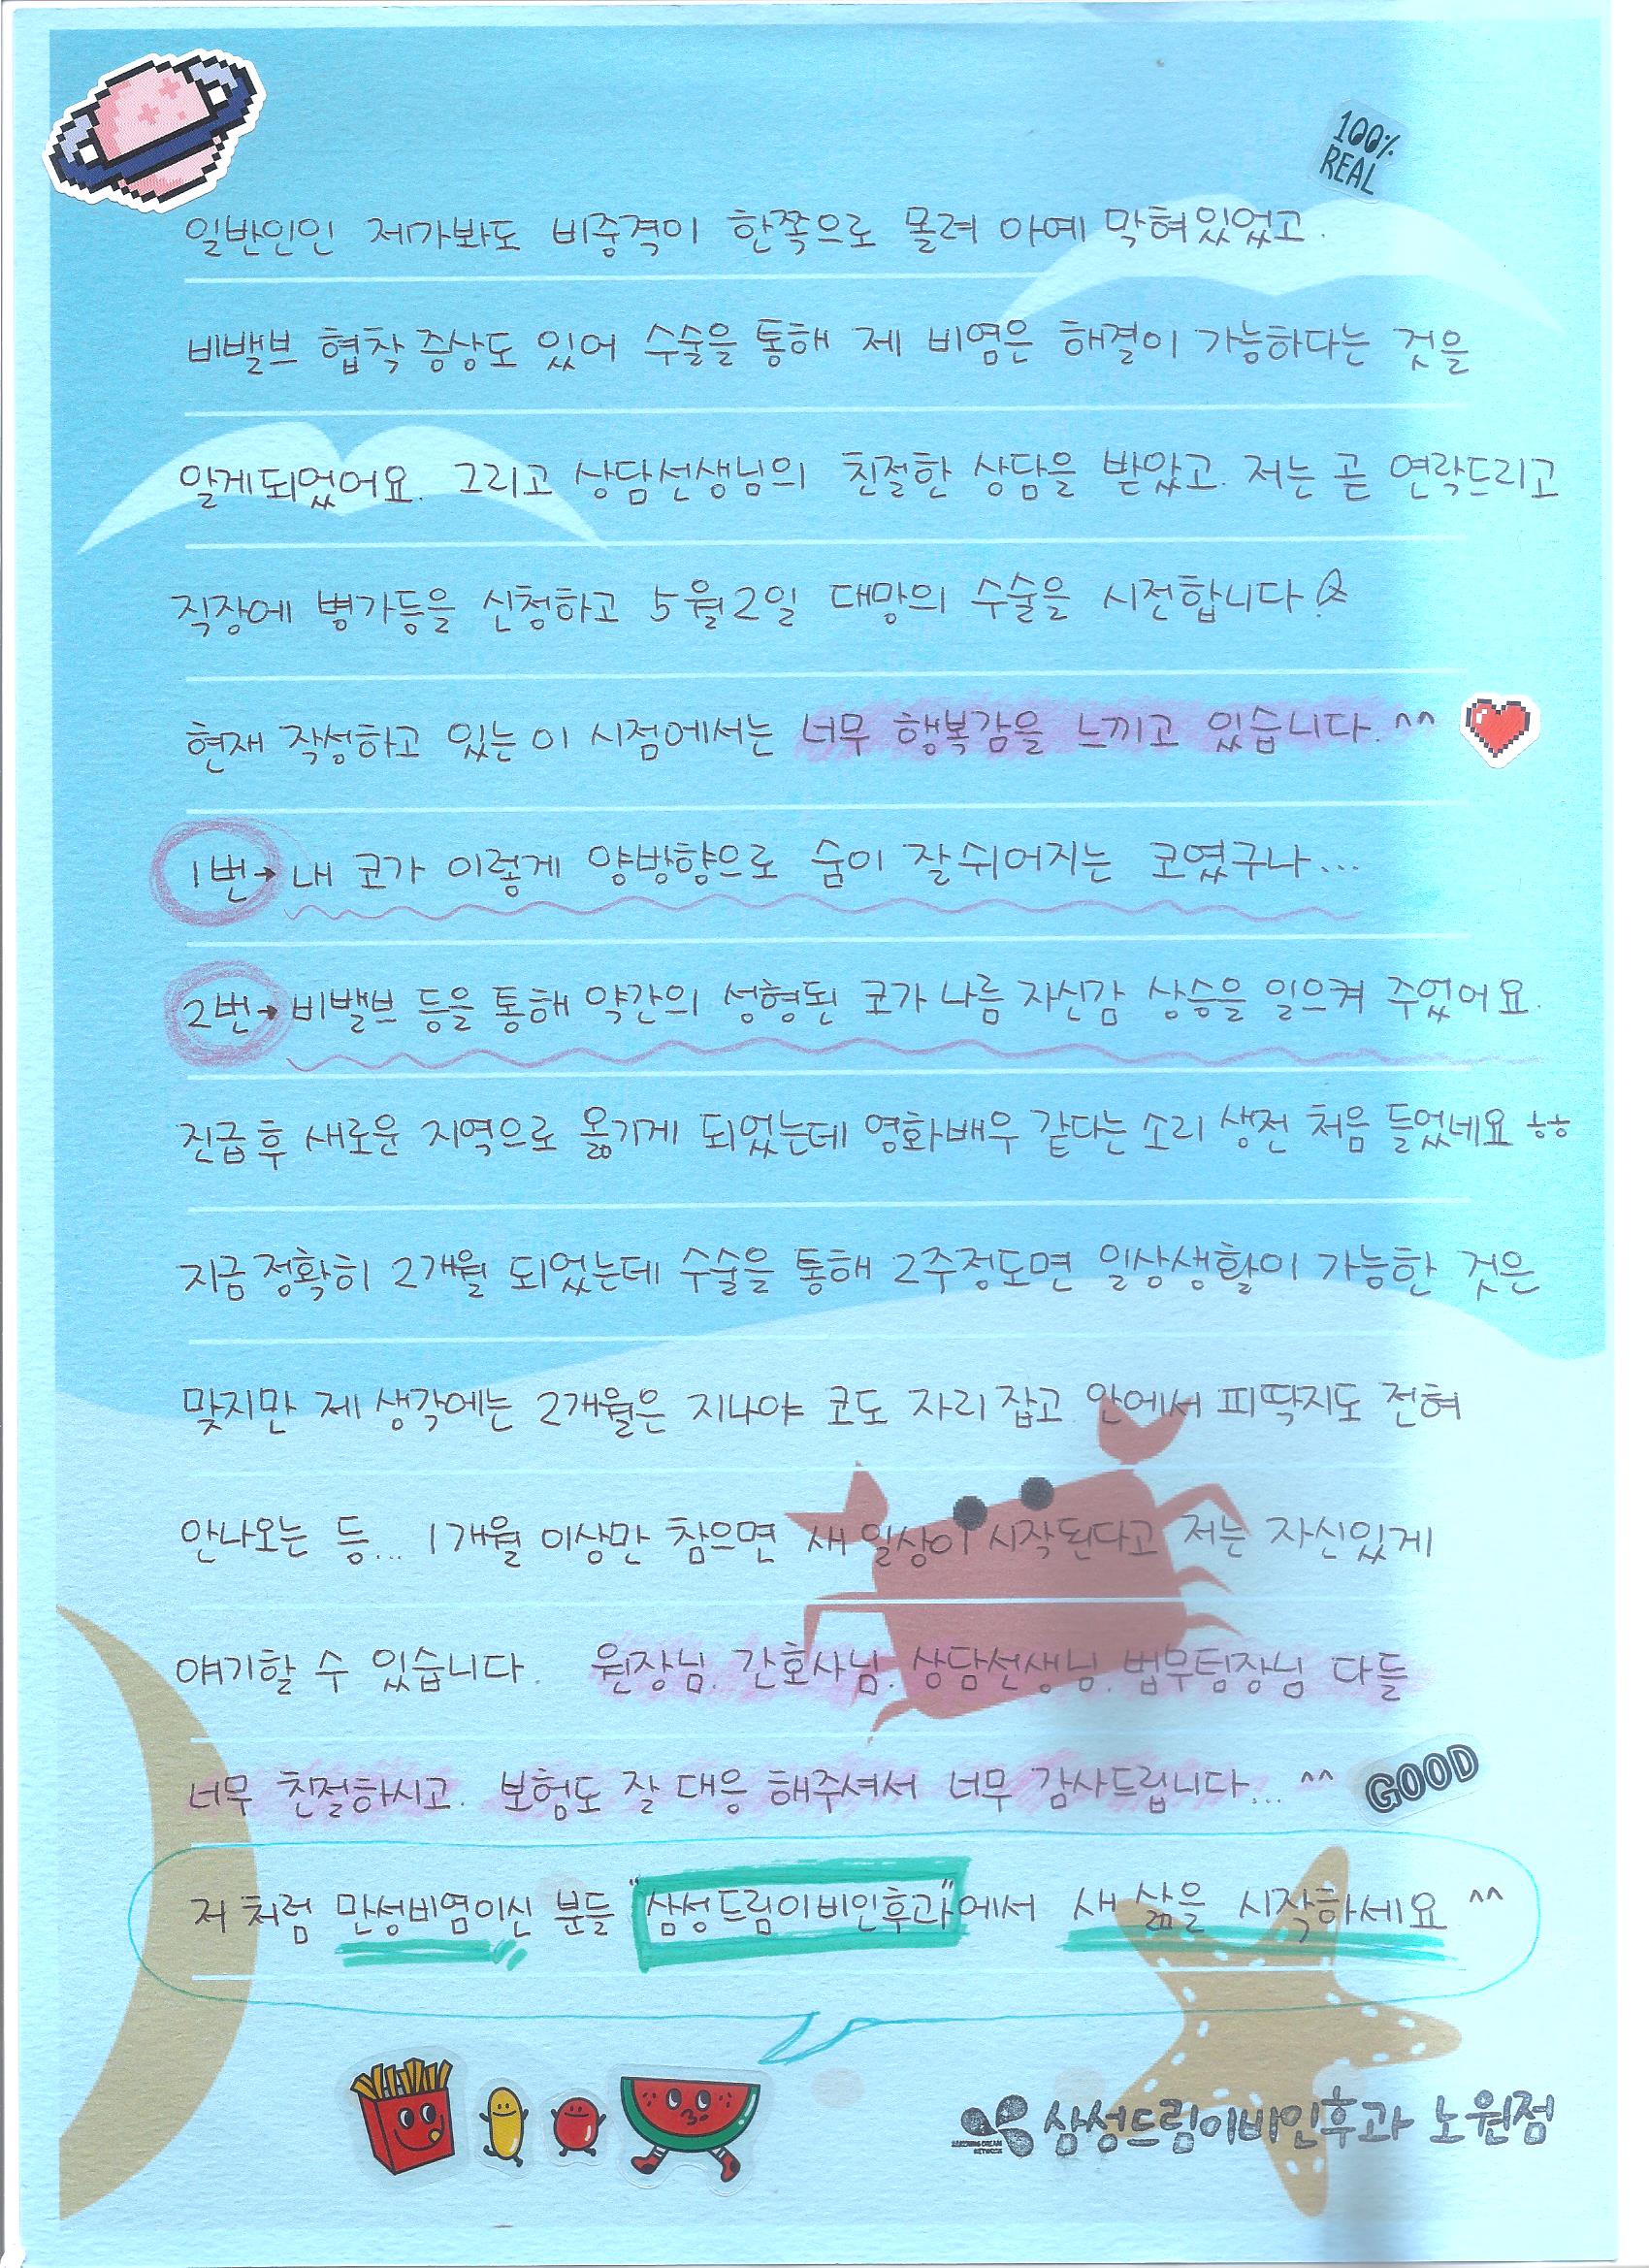 100%
REAL
일반인인 제가봐도 비중격이 한쪽으로 몰려 아예 막혀있었고.
비밸브 협착증상도 있어 수술을 통해 제 비염은 해결이 가능하다는 것을
알게되었어요. 그리고 상담선생님의 친절한 상담을 받았고. 저는 곧 연락드리고
직장에 병가등을 신청하고 5월2일 대망의 수술을 시전합니다!
현재 작성하고 있는 이 시점에서는 너무 행복감을 느끼고 있습니다.^^
1번→ 내 코가 이렇게 양방향으로 숨이 잘쉬어지는 코였구나...
2번→ 비밸브 등을 통해 약간의 성형된 코가 나름 자신감 상승을 일으켜 주었어요.
진급후 새로운 지역으로 옮기게 되었는데 영화배우 같다는 소리 생전 처음 들었네요 ㅎㅎ
지금 정확히 2개월 되었는데 수술을 통해 2주정도면 일상생활이 가능한 것은
맞지만 제 생각에는 2개월은 지나야 코도 자리 잡고 안에서 피딱지도 전혀
안나오는 등... 1개월 이상만 참으면 새 일상이 시작된다고 저는 자신있게
얘기할 수 있습니다. 원장님. 간호사님. 상담선생님. 법무팀장님 다들
너무 친절하시고. 보험도 잘 대응 해주셔서 너무 감사드립니다... ^^
GOOD
저 처럼 만성비염이신 분들 "삼성드림이비인후과"에서 새 삶을 시작하세요 ^^
삼성드림이비인후과 노원점